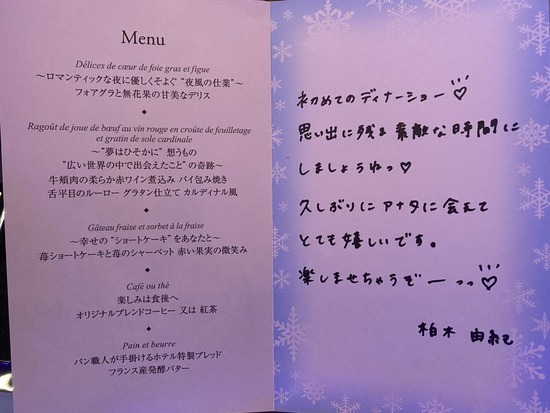 Menu
Délices de cœur de foie gras et figue
～ロマンティックな夜に優しくそよぐ “夜風の仕業”～
フォアグラと無花果の甘美なデリス
Ragoût de joue de bœuf au vin rouge en croûte de feuilletage
et gratin de sole cardinale
～“夢はひそかに” 想うもの
“広い世界の中で出会えたこと” の奇跡～
牛頬肉の柔らか赤ワイン煮込み パイ包み焼き
舌平目のルーロー グラタン仕立て カルディナル風
Gâteau fraise et sorbet à la fraise
～幸せの “ショートケーキ” をあなたと～
苺ショートケーキと苺のシャーベット 赤い果実の微笑み
Café ou thé
楽しみは食後へ
オリジナルブレンドコーヒー 又は 紅茶
Pain et beurre
パン職人が手掛けるホテル特製ブレッド
フランス産発酵バター
初めてのディナーショー♡
思い出に残る素敵な時間に
しましょうねっ♡
久しぶりにアナタに会えて
とても嬉しいです。
楽しませちゃうぞーっっ♡
柏木 由紀